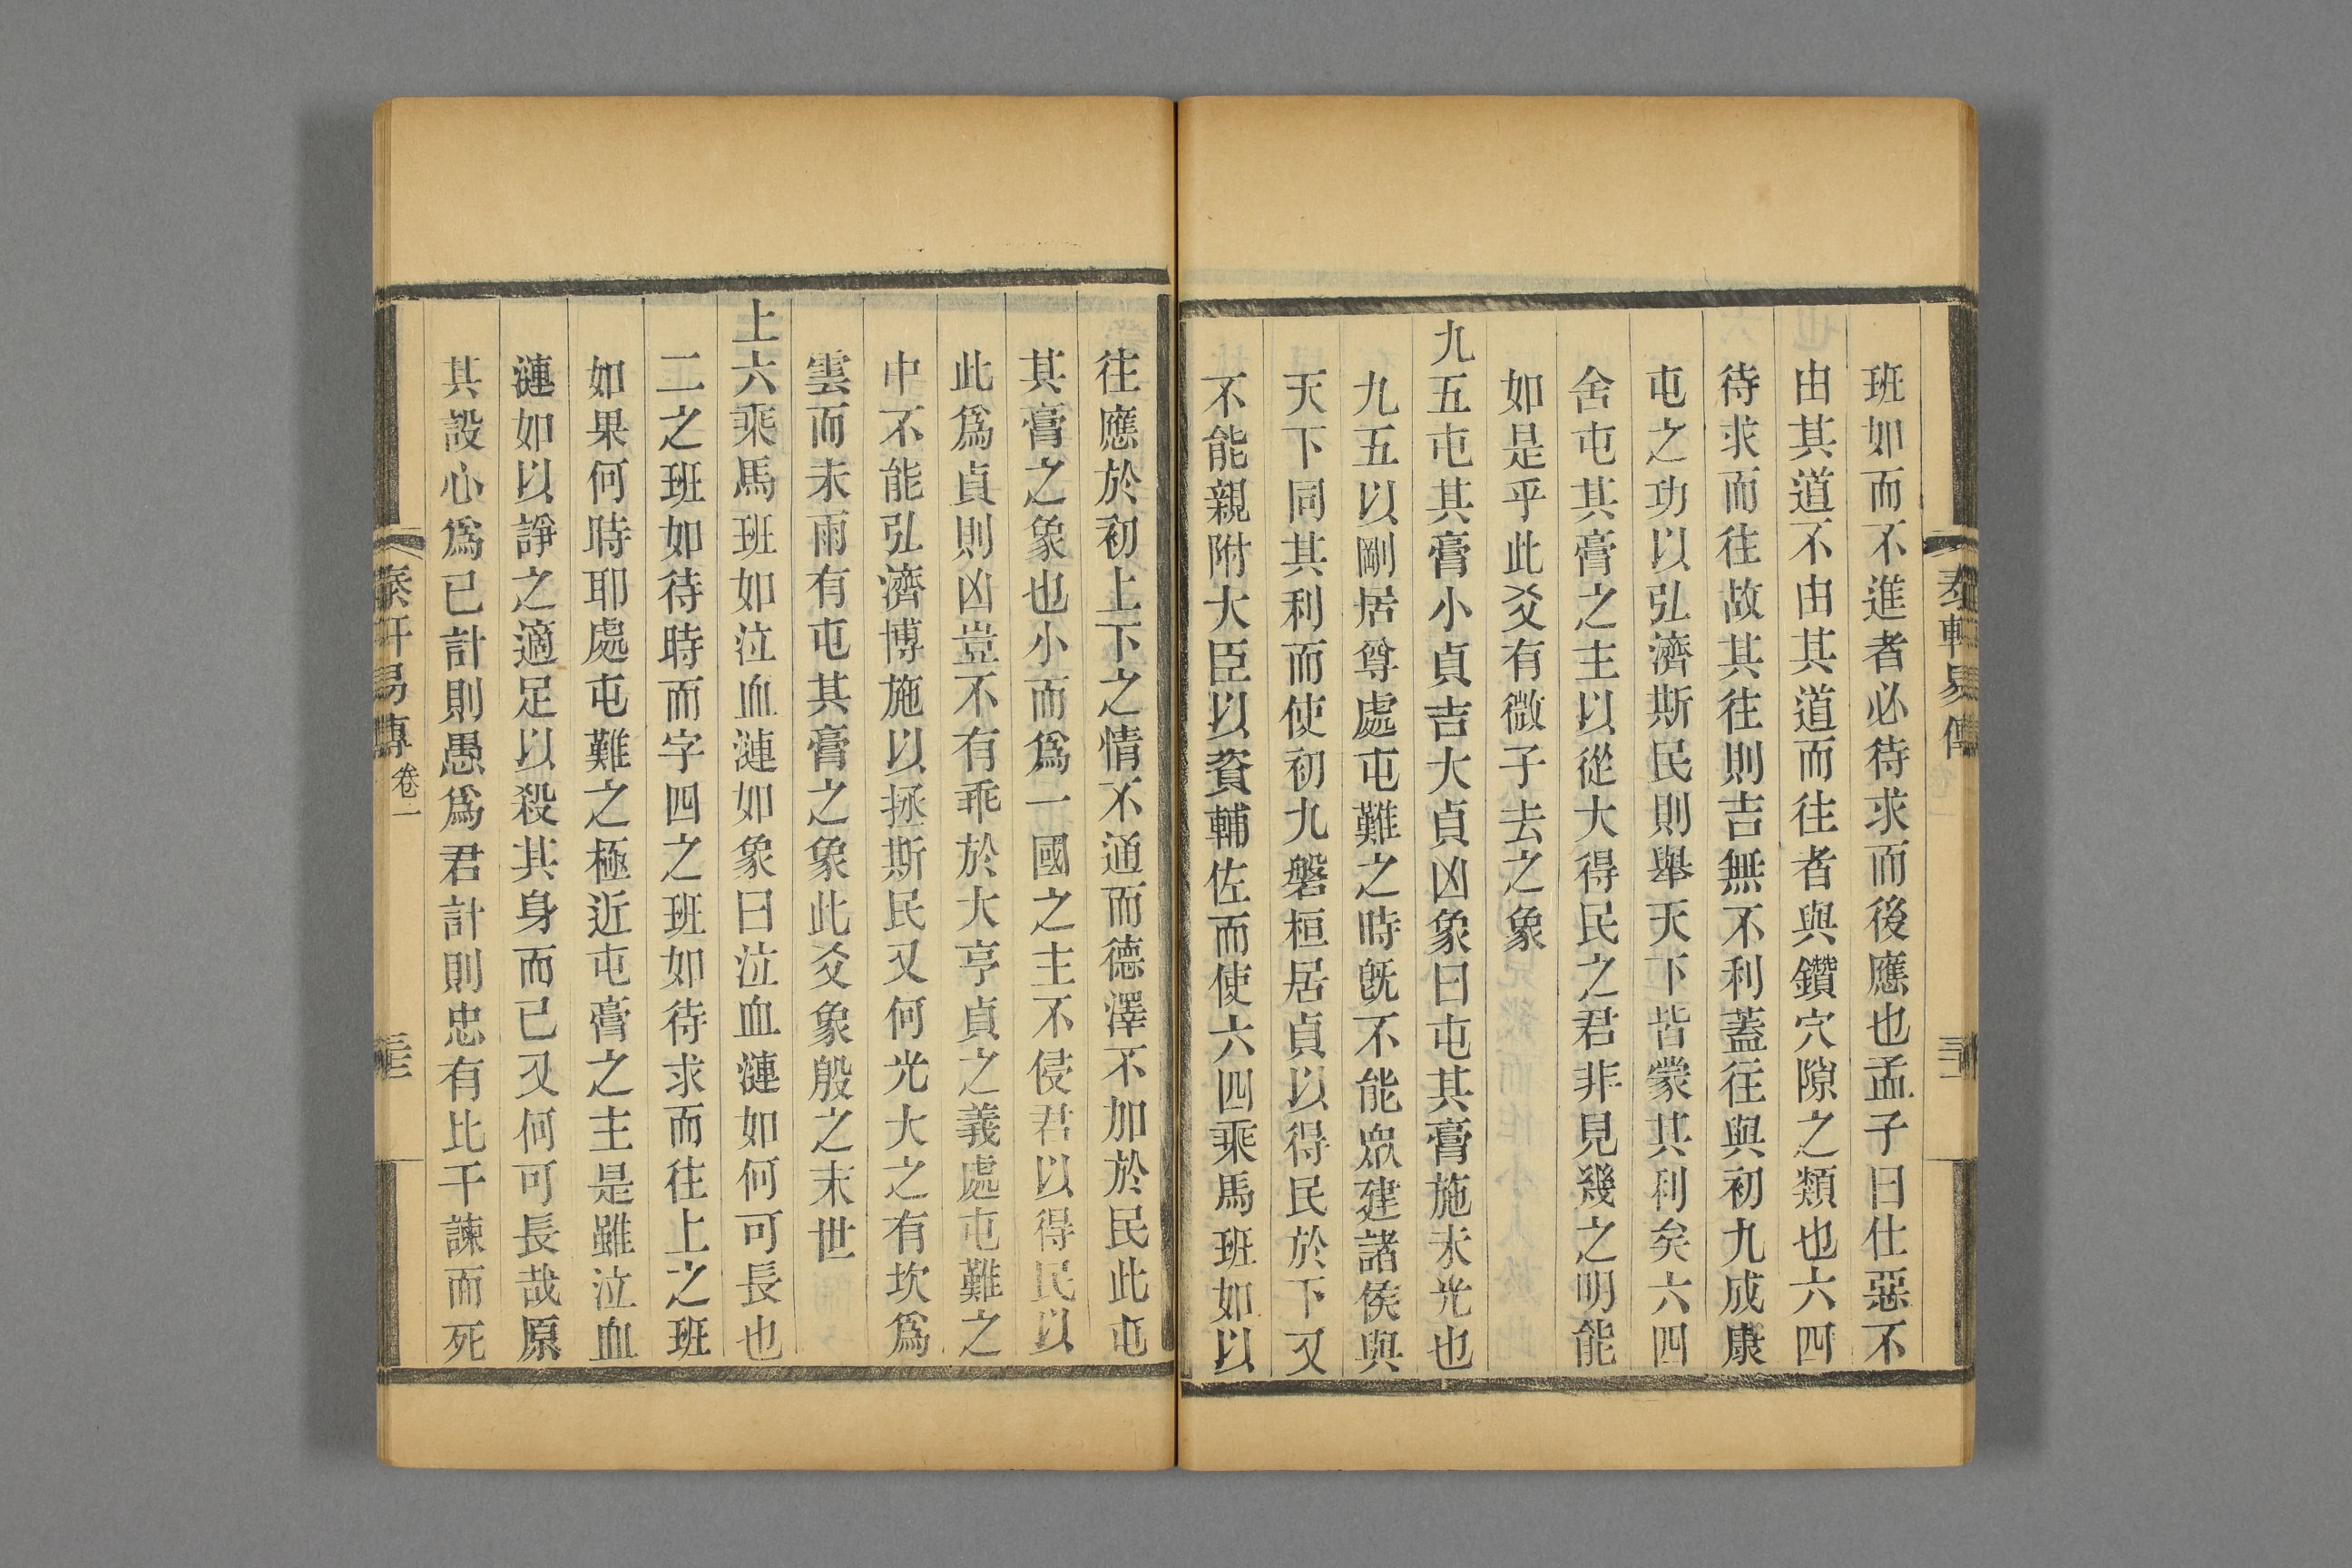 班如而不進者必待求而後應也孟子曰仕惡不
由其道不由其道而往者與鑽穴隙之類也六四
待求而往故其往則吉無不利蓋往與初九成康
屯之功以弘濟斯民則舉天下皆蒙其利矣六四
舍屯其膏之主以從大得民之君非見幾之明能
如是乎此爻有微子去之象
九五屯其膏小貞吉大貞凶象曰屯其膏施未光也
九五以剛居尊處屯難之時旣不能眾建諸侯與
天下同其利而使初九磐桓居貞以得民於下又
不能親附大臣以資輔佐而使六四乘馬班如以
往應於初上下之情不通而德澤不加於民此屯
其膏之象也小而爲一國之主不侵君以得民以
此爲貞則凶豈不有乖於大亨貞之義處屯難之
中不能弘濟博施以拯斯民又何光大之有坎爲
雲而未雨有屯其膏之象此爻象殷之末世
上六乘馬班如泣血漣如象曰泣血漣如何可長也
二之班如待時而字四之班如待求而往上之班
如果何時耶處屯難之極近屯膏之主是雖泣血
漣如以諍之適足以殺其身而已又何可長哉原
其設心爲已計則愚爲君計則忠有比干諫而死
泰軒易傳 卷一